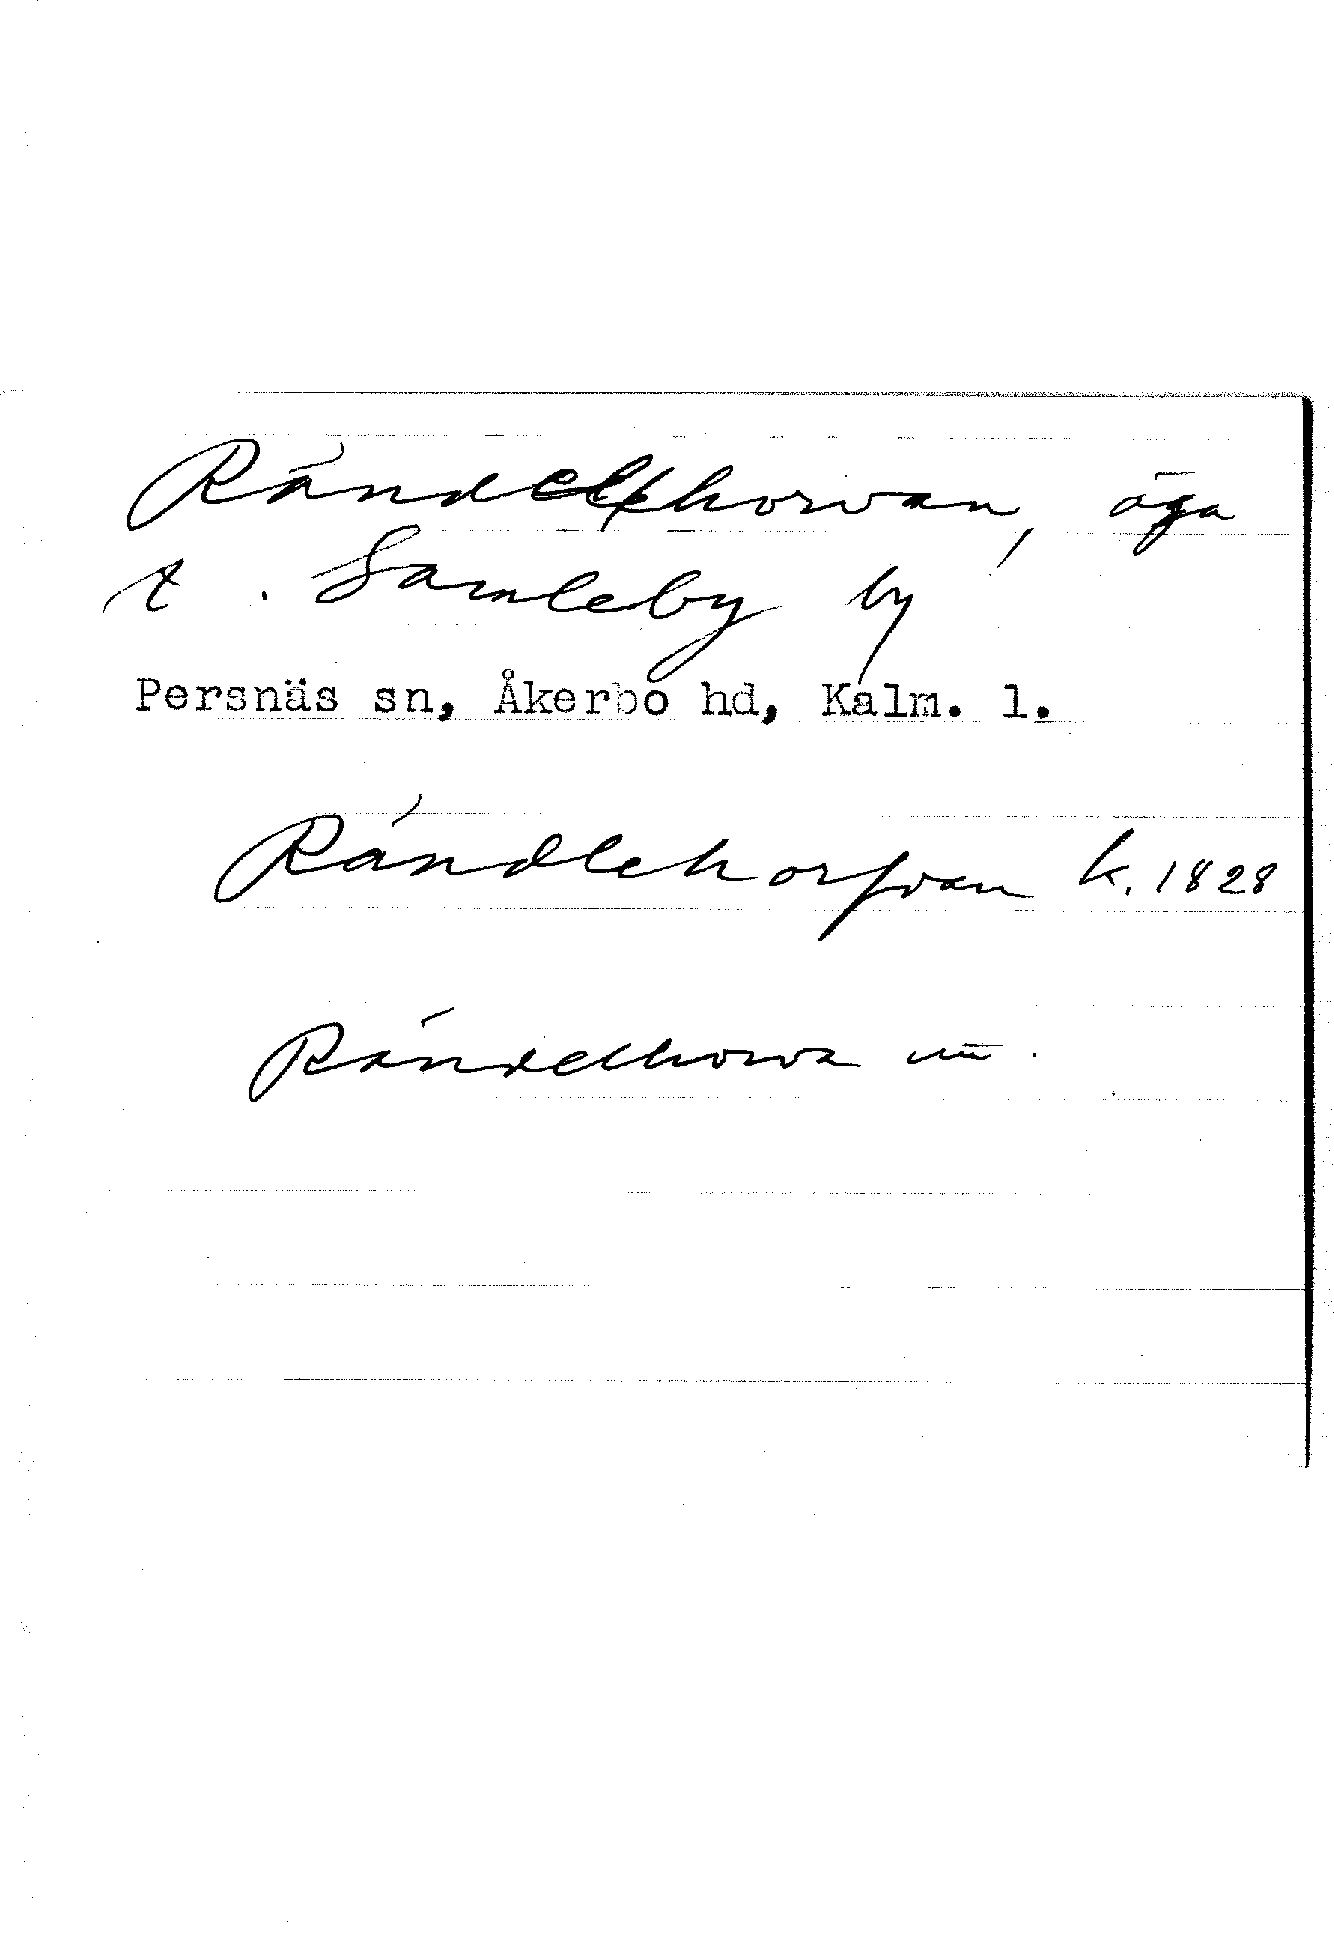 Rändelhorvan, äga
t. Samleby by
Persnäs sn, Åkerbo hd, Kalm. l.
Rändlehorfvan k. 1828
Rändelhorva